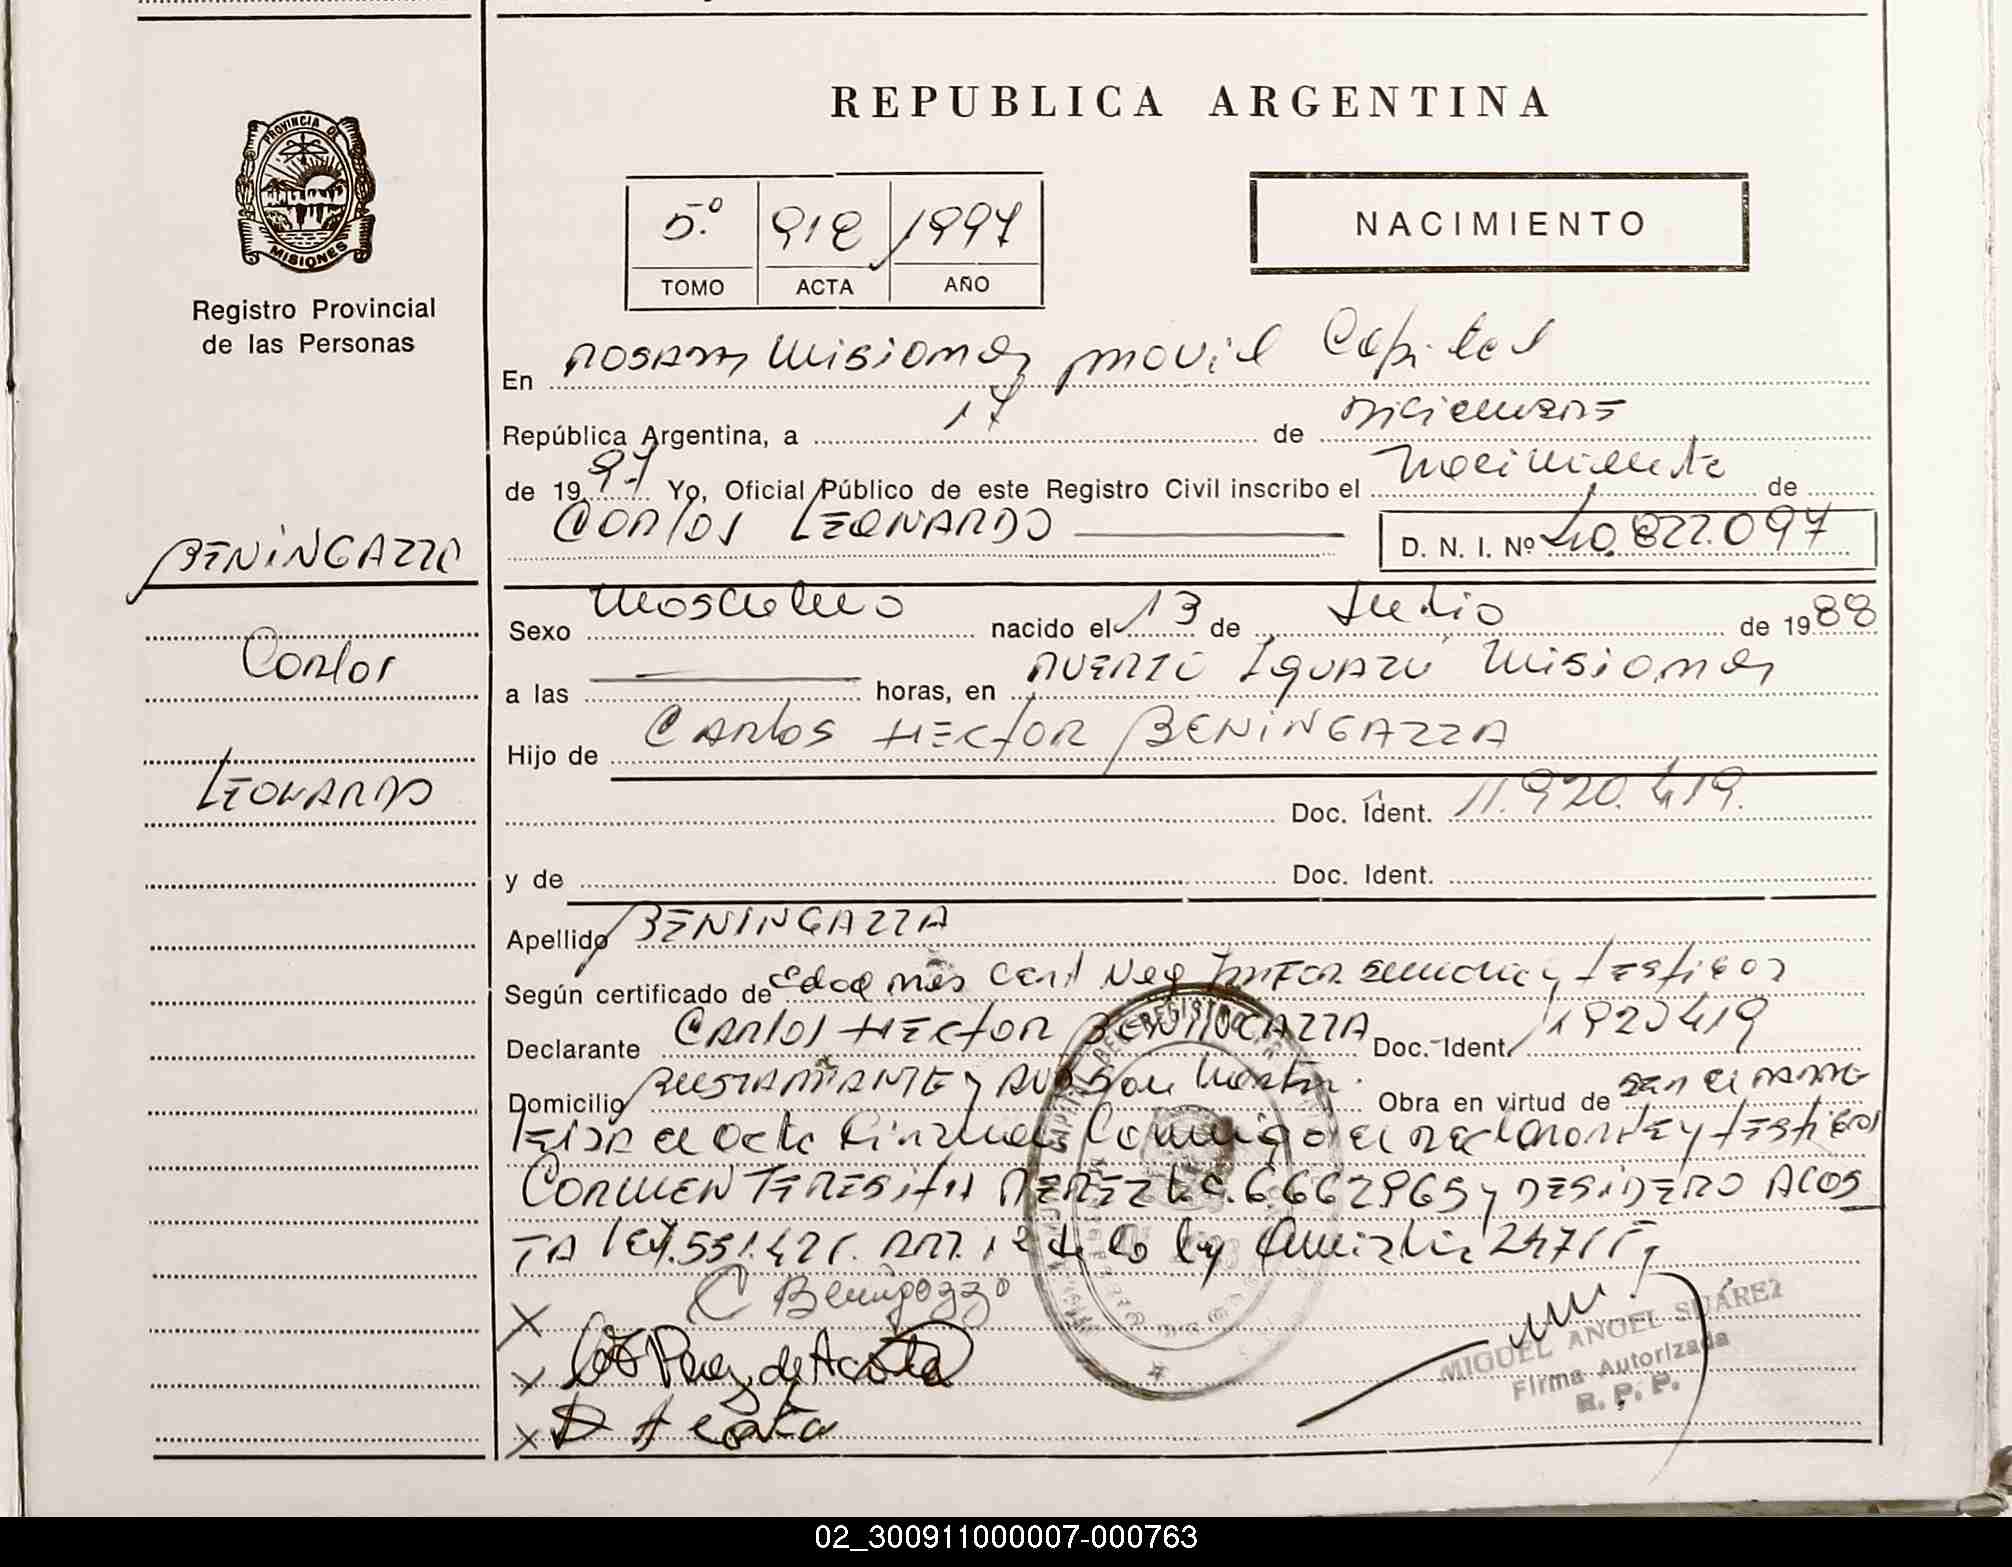 REPUBLICA ARGENTINA
PROVINCIA DE
MISIONES
Registro Provincial
de las Personas
5º 918 1997
TOMO ACTA AÑO
NACIMIENTO
En POSADAS MISIONES MOVIL Capital
República Argentina, a 17 de DICIEMBRE
de 1997 Yo, Oficial Público de este Registro Civil inscribo el Nacimiento de
CARLOS LEONARDO D. N. I. Nº 40.822.097
BENINGAZZA
Carlos
LEONARDO
Sexo Masculino nacido el 13 de Julio de 1988
a las horas, en PUERTO IGUAZÚ MISIONES
Hijo de CARLOS HECTOR BENINGAZZA
Doc. Ident. 11.920.419.
y de Doc. Ident.
Apellido BENINGAZZA
Según certificado de Edad Cert Neg y testigos
Declarante CARLOS HECTOR BENINGAZZA Doc. Ident. 11920419
Domicilio BUSTAMANTE y AVDA San Martin. Obra en virtud de SER EL PADRE
el Acta Firman Conmigo el DECLARANTE y TESTIGOS
CARMEN TERESITA PEREZ L.C. 6662965 y DESIDERO ACOS
TA LE 7.551.421. ART. 12 de la ley Amnistia
C Beningazza
CT Perez de Acosta
D Acosta
MIGUEL ANGEL SUÁREZ
Firma Autorizada
R. P. P.
02_300911000007-000763